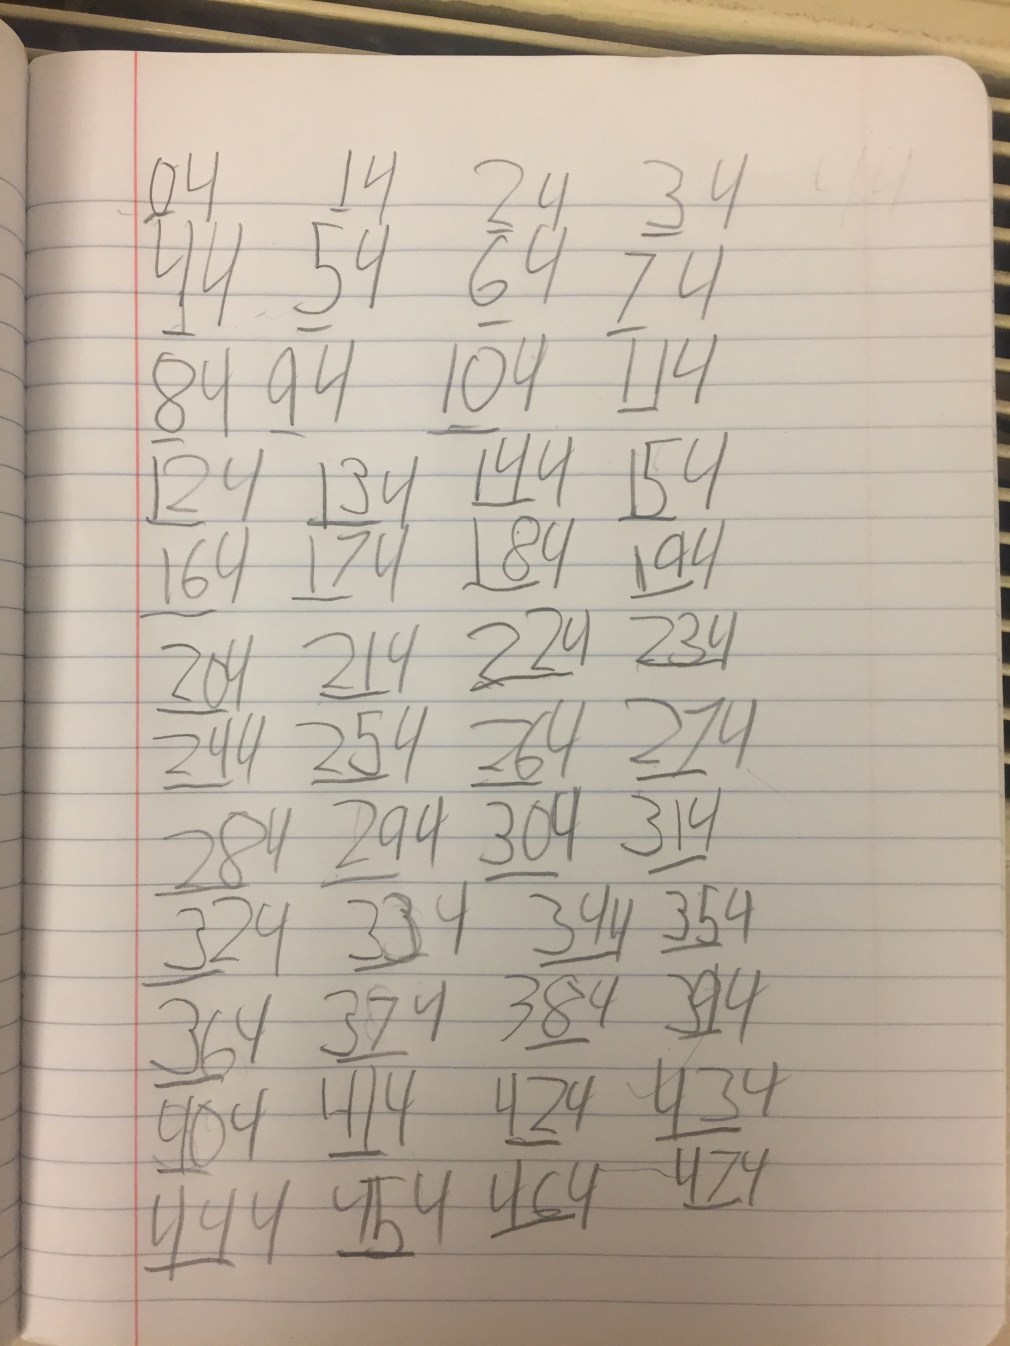 04 14 24 34
44 54 64 74
84 94 104 114
124 134 144 154
164 174 184 194
204 214 224 234
244 254 264 274
284 294 304 314
324 334 344 354
364 374 384 394
404 414 424 434
444 454 464 474